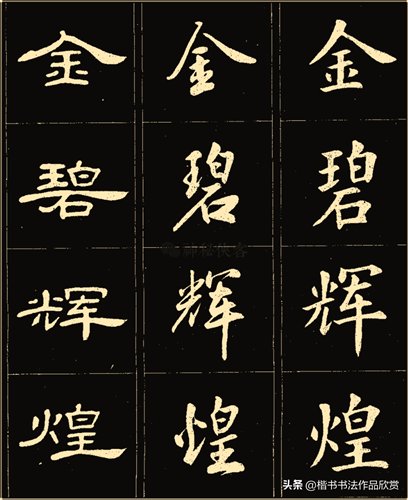 金碧辉煌
金碧辉煌
金碧辉煌
头条@楷书书法作品欣赏